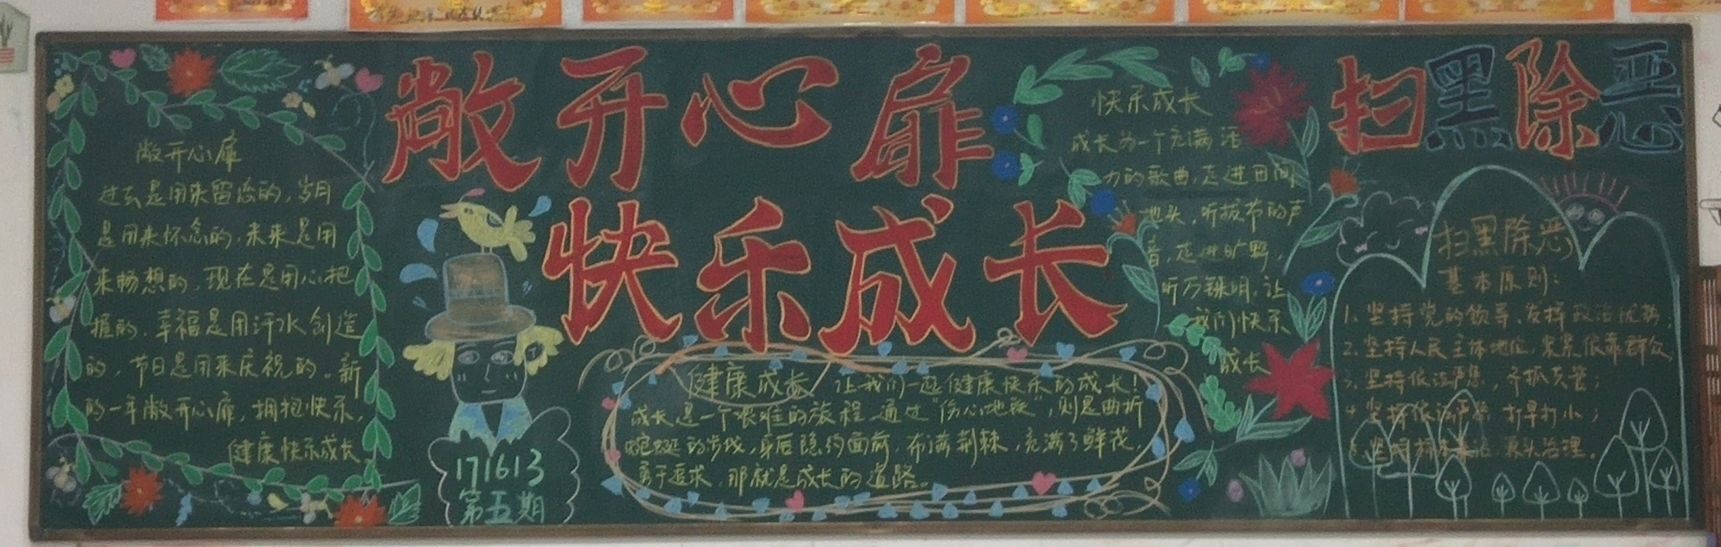 敞开心扉
快乐成长
扫黑除恶
敞开心扉
过去是用来留恋的，岁月
是用来怀念的，未来是用
来畅想的，现在是用心把
握的，幸福是用汗水创造
的，节日是用来庆祝的。新
的一年敞开心扉，拥抱快乐，
健康快乐成长
171613
第五期
健康成长 让我们一起健康快乐的成长！
成长是一个艰难的旅程，通过“伤心地段”，则是曲折
蜿蜒的步伐，身后隐约面前，布满荆棘，充满了鲜花，
勇于追求，那就是成长的道路。
快乐成长
成长为一个充满活
力的歌曲，走进田间
地头，听拔节的声
音，走进旷野，
听万
让
我们快乐
成长
扫黑除恶
基本原则：
1、坚持党的领导、发挥政治优势；
2、坚持人民主体地位，紧紧依靠群众；
3、坚持 ，齐抓共管；
4、坚持依法严惩 打早打小；
5、坚持标本兼治 源头治理。